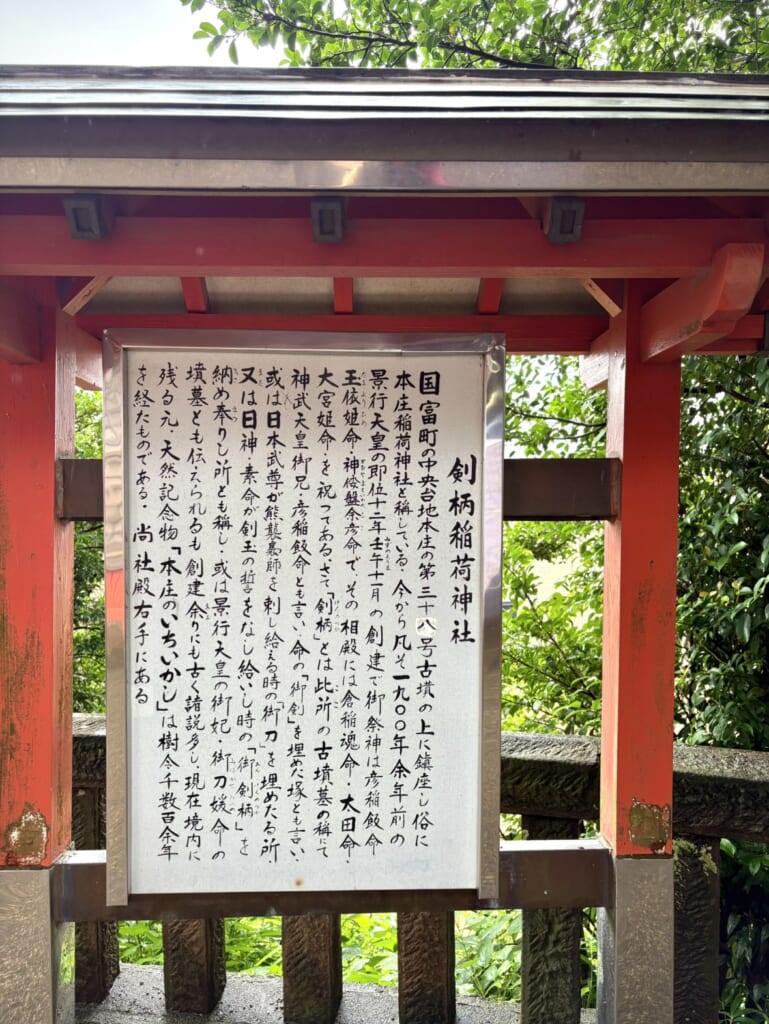 剣柄稲荷神社
国富町の中央台地本庄の第三十八号古墳の上に鎮座し俗に
本庄稲荷神社と称している。今から凡そ一九〇〇年余年前の
景行天皇の即位十二年壬午十一月の創建で御祭神は彦稲飯命
玉依姫命・神倭盤余彦命で、その相殿には倉稲魂命・太田命・
大宮姫命・を祝つてある。さて「剣柄」とは此所の古墳墓の称にて
神武天皇御兄・彦稲飯命とも言い、命の「御剣」を埋めた塚とも言い・
或は日本武尊が熊襲梟師を刺し給える時の「御刀」を埋めたる所・
又は日神・素命が剣玉の誓をなし給いし時の「御剣柄」を
納め奉りし所とも称し・或は景行・天皇の御妃・御刀媛命の
墳墓とも伝えられるも創建余りにも古く諸説多し、現在境内に
残る元・天然記念物「本庄のいちいかし」は樹令千数百余年
を経たものである・尚社殿右手にある